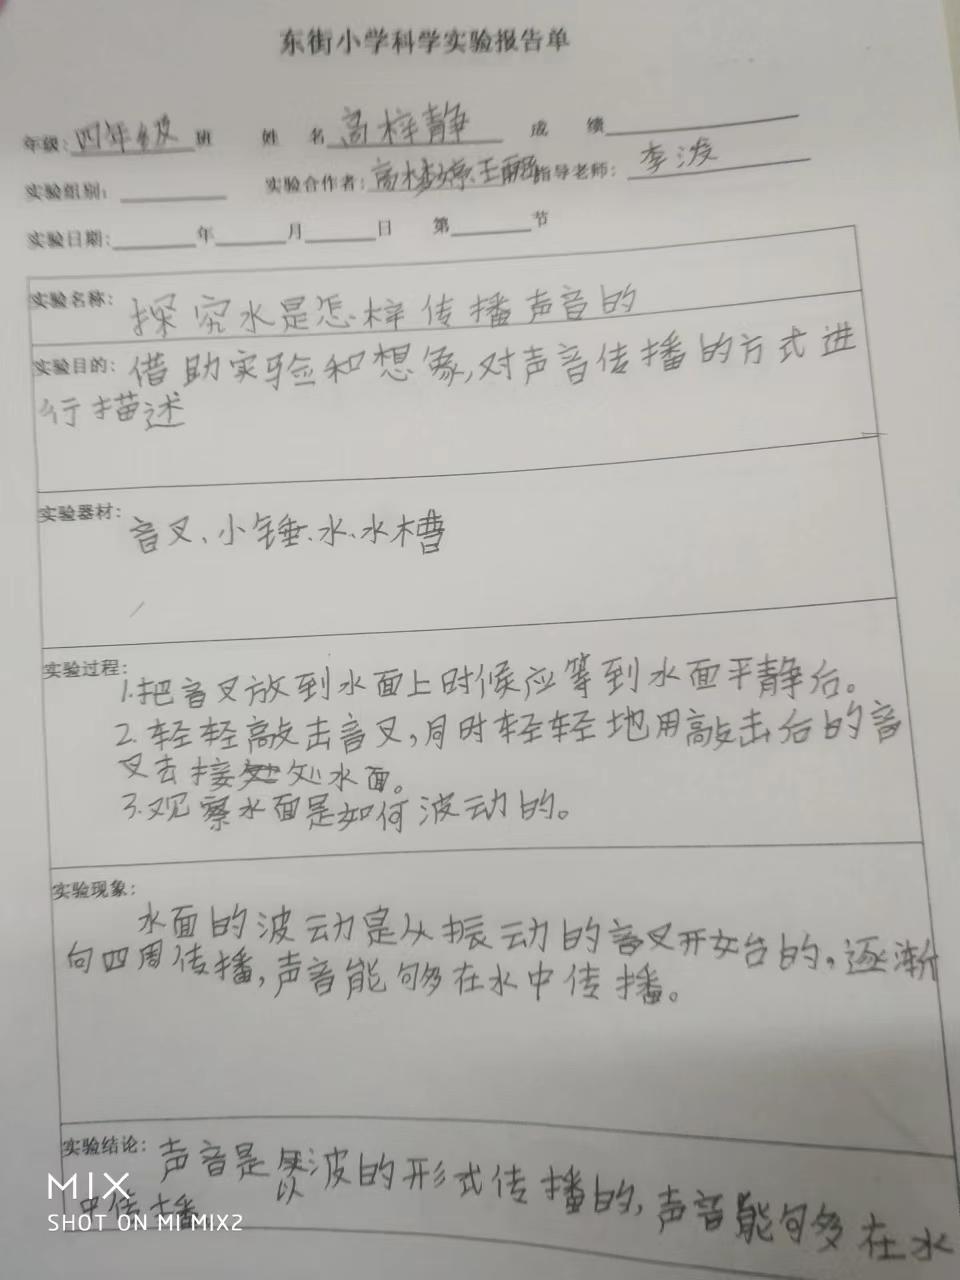 东街小学科学实验报告单
年级:四年级班 姓名高梓静 成绩
实验组别: 实验合作者:高 王 指导老师:李浚
实验日期: 年 月 日 第 节
实验名称: 探究水是怎梓传播声音的
实验目的: 借助实验和想象,对声音传播的方式进
行描述
实验器材: 音叉、小锤、水、水槽
实验过程:
1.把音叉放到水面上时候应等到水面平静后。
2.轻轻敲击音叉,同时轻轻地用敲击后的音
叉去接处水面。
3.观察水面是如何波动的。
实验现象:
水面的波动是从振动的音叉开始的,逐渐
向四周传播,声音能够在水中传播。
实验结论: 声音是以波的形式传播的,声音能够在水
中传播
MIX
SHOT ON MI MIX2